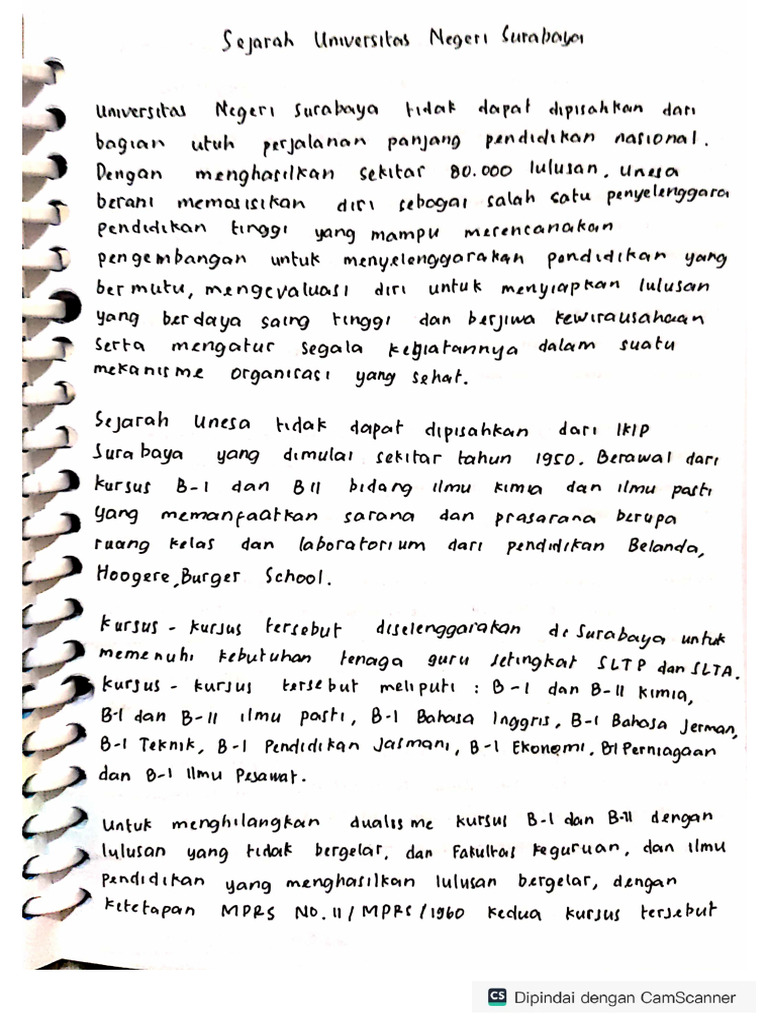 Sejarah Universitas Negeri Surabaya
Universitas Negeri Surabaya tidak dapat dipisahkan dari
bagian utuh perjalanan panjang pendidikan nasional.
Dengan menghasilkan sekitar 80.000 lulusan, Unesa
berani memosisikan diri sebagai salah satu penyelenggara
pendidikan tinggi yang mampu merencanakan
pengembangan untuk menyelenggarakan pendidikan yang
bermutu, mengevaluasi diri untuk menyiapkan lulusan
yang berdaya saing tinggi dan berjiwa kewirausahaan
serta mengatur segala kegiatannya dalam suatu
mekanisme organisasi yang sehat.
Sejarah Unesa tidak dapat dipisahkan dari IKIP
Surabaya yang dimulai sekitar tahun 1950. Berawal dari
kursus B-I dan BII bidang ilmu kimia dan ilmu pasti
yang memanfaatkan sarana dan prasarana berupa
ruang kelas dan laboratorium dari pendidikan Belanda,
Hoogere, Burger School.
Kursus - kursus tersebut diselenggarakan di Surabaya untuk
memenuhi kebutuhan tenaga guru setingkat SLTP dan SLTA.
Kursus - kursus tersebut meliputi : B-I dan B-II kimia,
B-I dan B-II ilmu pasti, B-I Bahasa Inggris, B-I Bahasa Jerman,
B-I Teknik, B-I Pendidikan Jasmani, B-I Ekonomi, BI Perniagaan
dan B-I Ilmu Pesawat.
Untuk menghilangkan dualisme kursus B-I dan B-II dengan
lulusan yang tidak bergelar, dan Fakultas Keguruan, dan ilmu
pendidikan yang menghasilkan lulusan bergelar, dengan
ketetapan MPRS No.II/MPRS/1960 kedua kursus tersebut
CS Dipindai dengan CamScanner